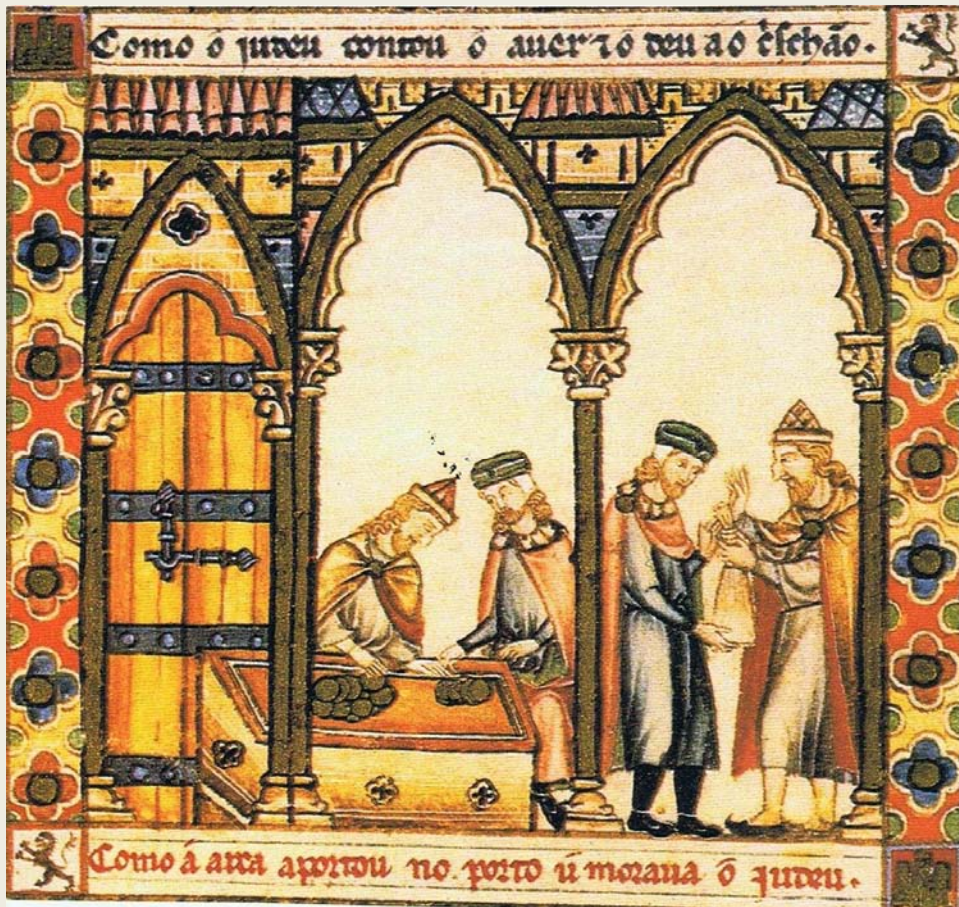 Como ó judeu contou ó auer ⁊ ó deu a ó c̃schão.
Como á arca aportou no porto ú moraua ó judeu.